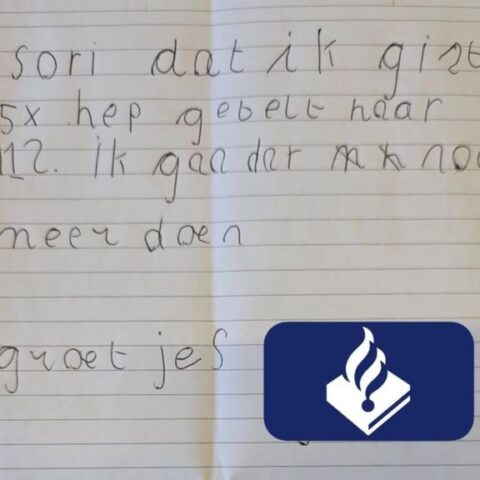 sori dat ik gist
5x hep gebelt naar
112. ik gaa dat noo
meer doen
groet jes